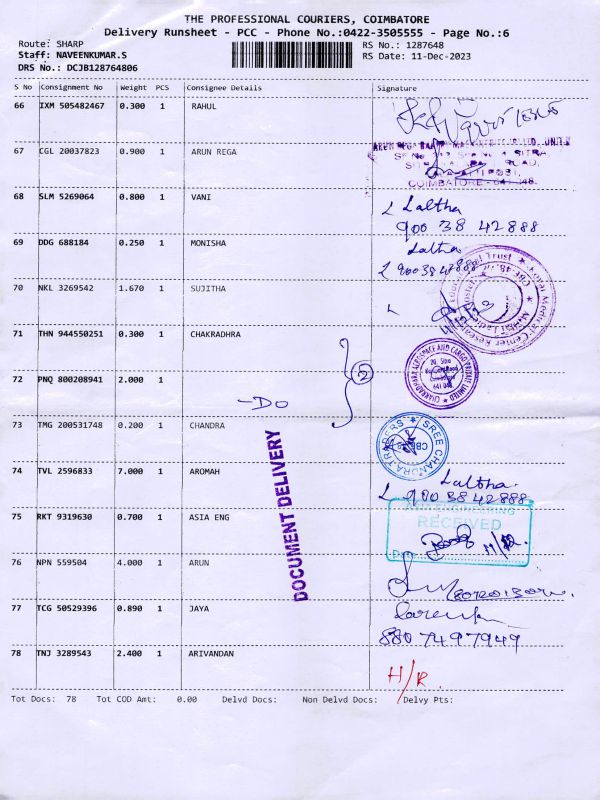 THE PROFESSIONAL COURIERS, COIMBATORE
Delivery Runsheet - PCC - Phone No.:0422-3505555 - Page No.:6
Route: SHARP RS No.: 1287648
Staff: NAVEENKUMAR.S RS Date: 11-Dec-2023
DRS No.: DCJB128764806
S No Consignment No Weight PCS Consignee Details Signature
66 IXM 505482467 0.300 1 RAHUL
67 CGL 20037823 0.900 1 ARUN REGA
COIMBATORE - 641 048.
68 SLM 5269064 0.800 1 VANI Laltha
900 38 42888
69 DDG 688184 0.250 1 MONISHA Laltha
900 38 42888
70 NKL 3269542 1.670 1 SUJITHA
71 THN 944550251 0.300 1 CHAKRADHRA
CHAKRADHARA AEROSPACE AND CARGO PRIVATE LIMITED
641 048
72 PNQ 800208941 2.000 1
-DO
73 TMG 200531748 0.200 1 CHANDRA
SREE CHANDRA TRADERS
CBE
DOCUMENT DELIVERY
74 TVL 2596833 7.000 1 AROMAH Laltha.
900 38 42888
75 RKT 9319630 0.700 1 ASIA ENG
ASIA ENGINEERING
RECEIVED
Date
76 NPN 559504 4.000 1 ARUN
77 TCG 50529396 0.890 1 JAYA
8807497949
78 TNJ 3289543 2.400 1 ARIVANDAN H/R.
Tot Docs: 78 Tot COD Amt: 0.00 Delvd Docs: Non Delvd Docs: Delvy Pts: